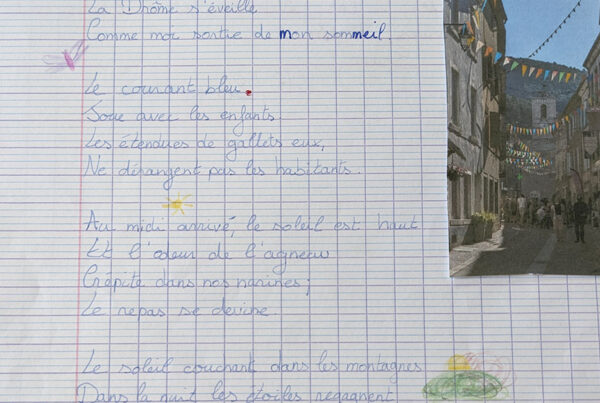 La Drôme s'éveille
Comme moi sortie de mon sommeil.
Le courant bleu.
Joue avec les enfants.
Les étendues de gallets eux,
Ne dérangent pas les habitants.
Au midi arrivé, le soleil est haut
Et l'odeur de l'agneau
Crépite dans nos narines ;
Le repas se devine.
Le soleil couchant dans les montagnes
Dans la nuit les étoiles regagnent